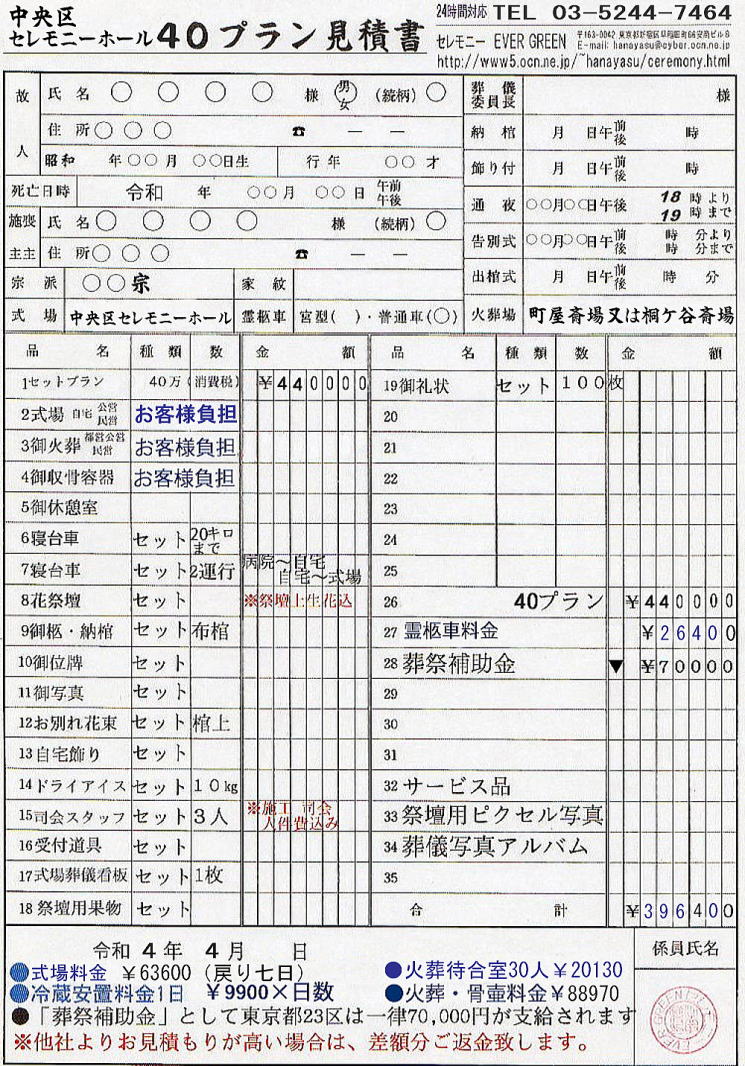 中央区
セレモニーホール 40プラン見積書
24時間対応 TEL 03-5244-7464
セレモニー EVER GREEN
〒163-0042 東京都新宿区早稲田町66安尚ビル6
E-mail: hanayasu@cyber.ocn.ne.jp
http://www5.ocn.ne.jp/~hanayasu/ceremony.html
故人 氏名 ○ ○ ○ ○ 様 男女 (続柄) ○
住所 ○ ○ ○ ☎ ― ―
昭和 年○○月 ○○日生 行年 ○○才
死亡日時 令和 年 ○○月 ○○日 午前午後
施主 喪主 氏名 ○ ○ ○ ○ 様 (続柄) ○
住所 ○ ○ ○ ☎ ― ―
宗派 ○○宗 家紋
式場 中央区セレモニーホール 霊柩車 宮型( )・普通車(○)
葬儀委員長 様
納棺 月 日午前後 時
飾り付 月 日午前後 時
通夜 ○○月○○日午後 18時より 19時まで
告別式 ○○月○○日午前後 時 分より 時 分まで
出棺式 月 日午前後 時 分
火葬場 町屋斎場又は桐ケ谷斎場
品名 種類 数 金額
1セットプラン 40万 (消費税) ¥440000
2式場 自宅 公営民営 お客様負担
3御火葬 都営公営民営 お客様負担
4御収骨容器 お客様負担
5御休憩室
6寝台車 セット 20キロまで
7寝台車 セット 2運行 病院〜自宅 自宅〜式場
8花祭壇 セット ※祭壇上生花込
9御柩・納棺 セット 布棺
10御位牌 セット
11御写真 セット
12お別れ花束 セット 棺上
13自宅飾り セット
14ドライアイス セット 10kg
15司会スタッフ セット 3人 ※施工 司会 人件費込み
16受付道具 セット
17式場葬儀看板 セット 1枚
18祭壇用果物 セット
品名 種類 数 金額
19御礼状 セット 100枚
20
21
22
23
24
25
26 40プラン ¥440000
27 霊柩車料金 ¥26400
28 葬祭補助金 ▼ ¥70000
29
30
31
32 サービス品
33 祭壇用ピクセル写真
34 葬儀写真アルバム
35
合計 ¥396400
令和 4年 4月 日
係員氏名
●式場料金 ¥63600 (戻り七日)
●火葬待合室30人¥20130
●冷蔵安置料金1日 ¥9900×日数
●火葬・骨壺料金¥88970
●「葬祭補助金」として東京都23区は一律70,000円が支給されます
※他社よりお見積もりが高い場合は、差額分ご返金致します。